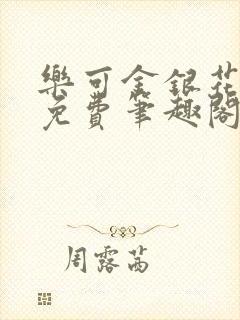 樂可金銀花
免費筆趣閣
周露茜